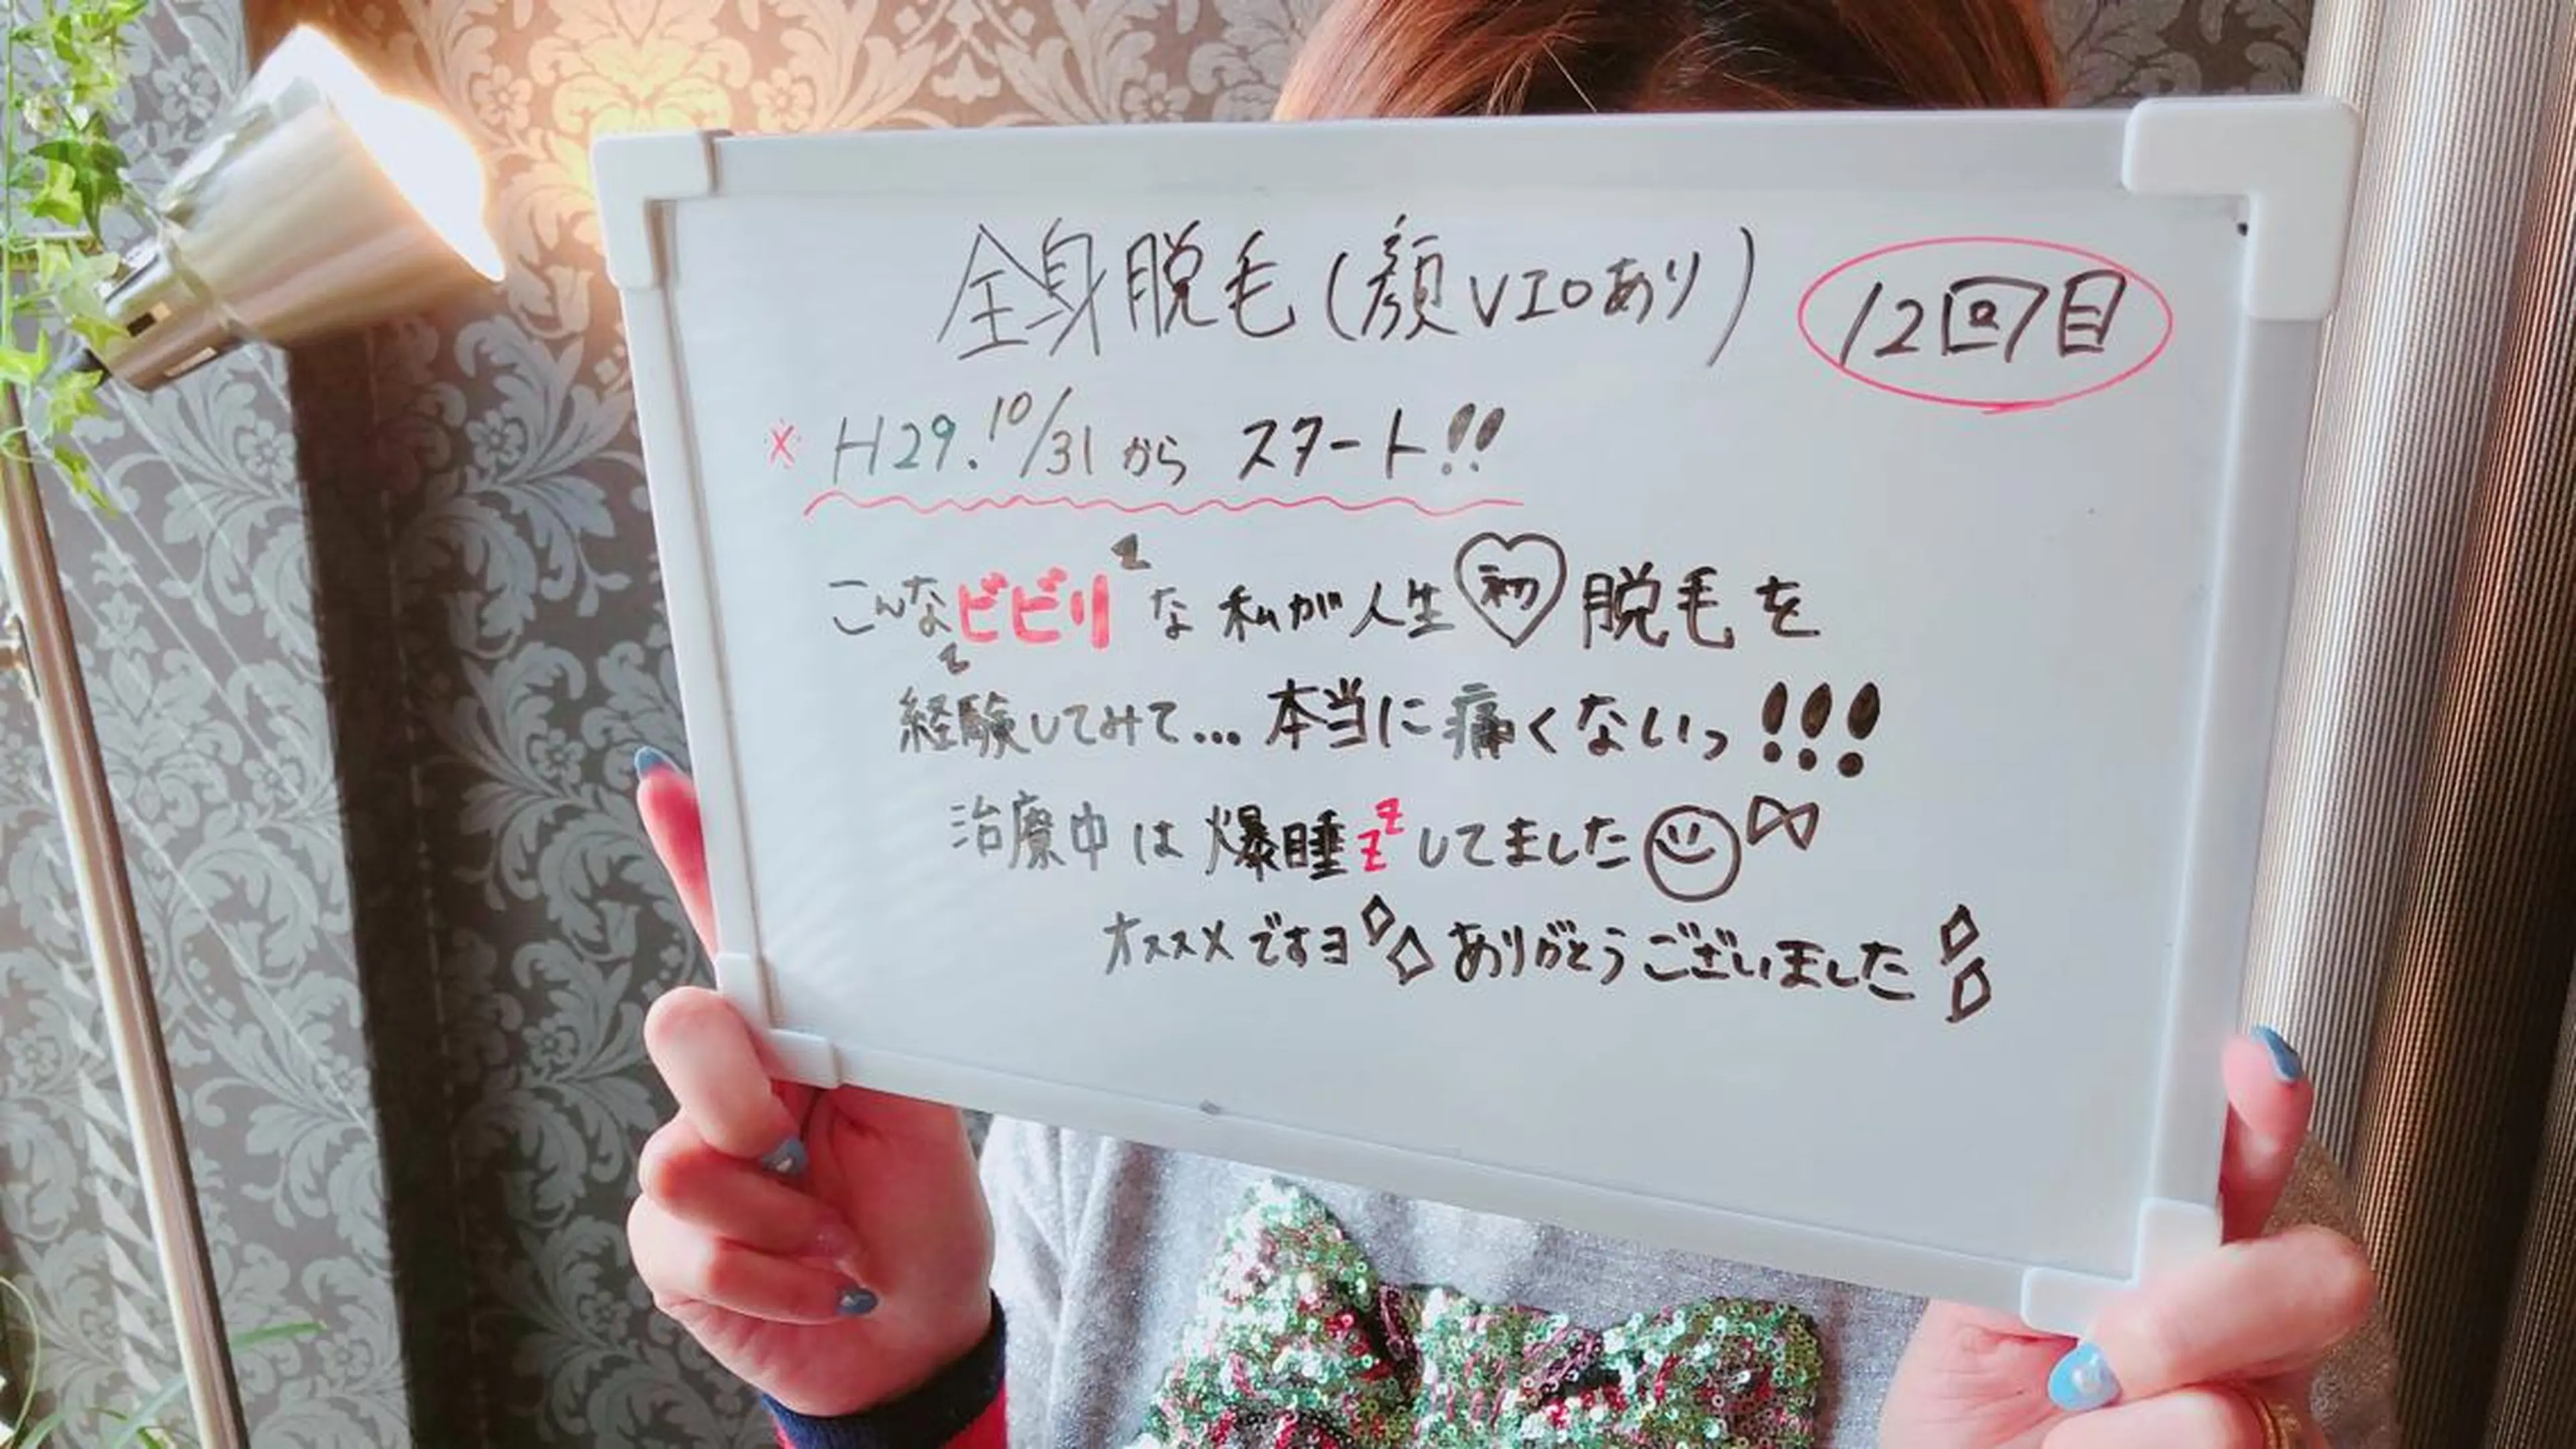 全身脱毛(顔VIOあり) 12回目
※ H29.10/31から スタート!!
こんなビビりな私が人生初脱毛を
経験してみて…本当に痛くないっ!!!
治療中は爆睡zzしてました
オススメですヨ ありがとうございました